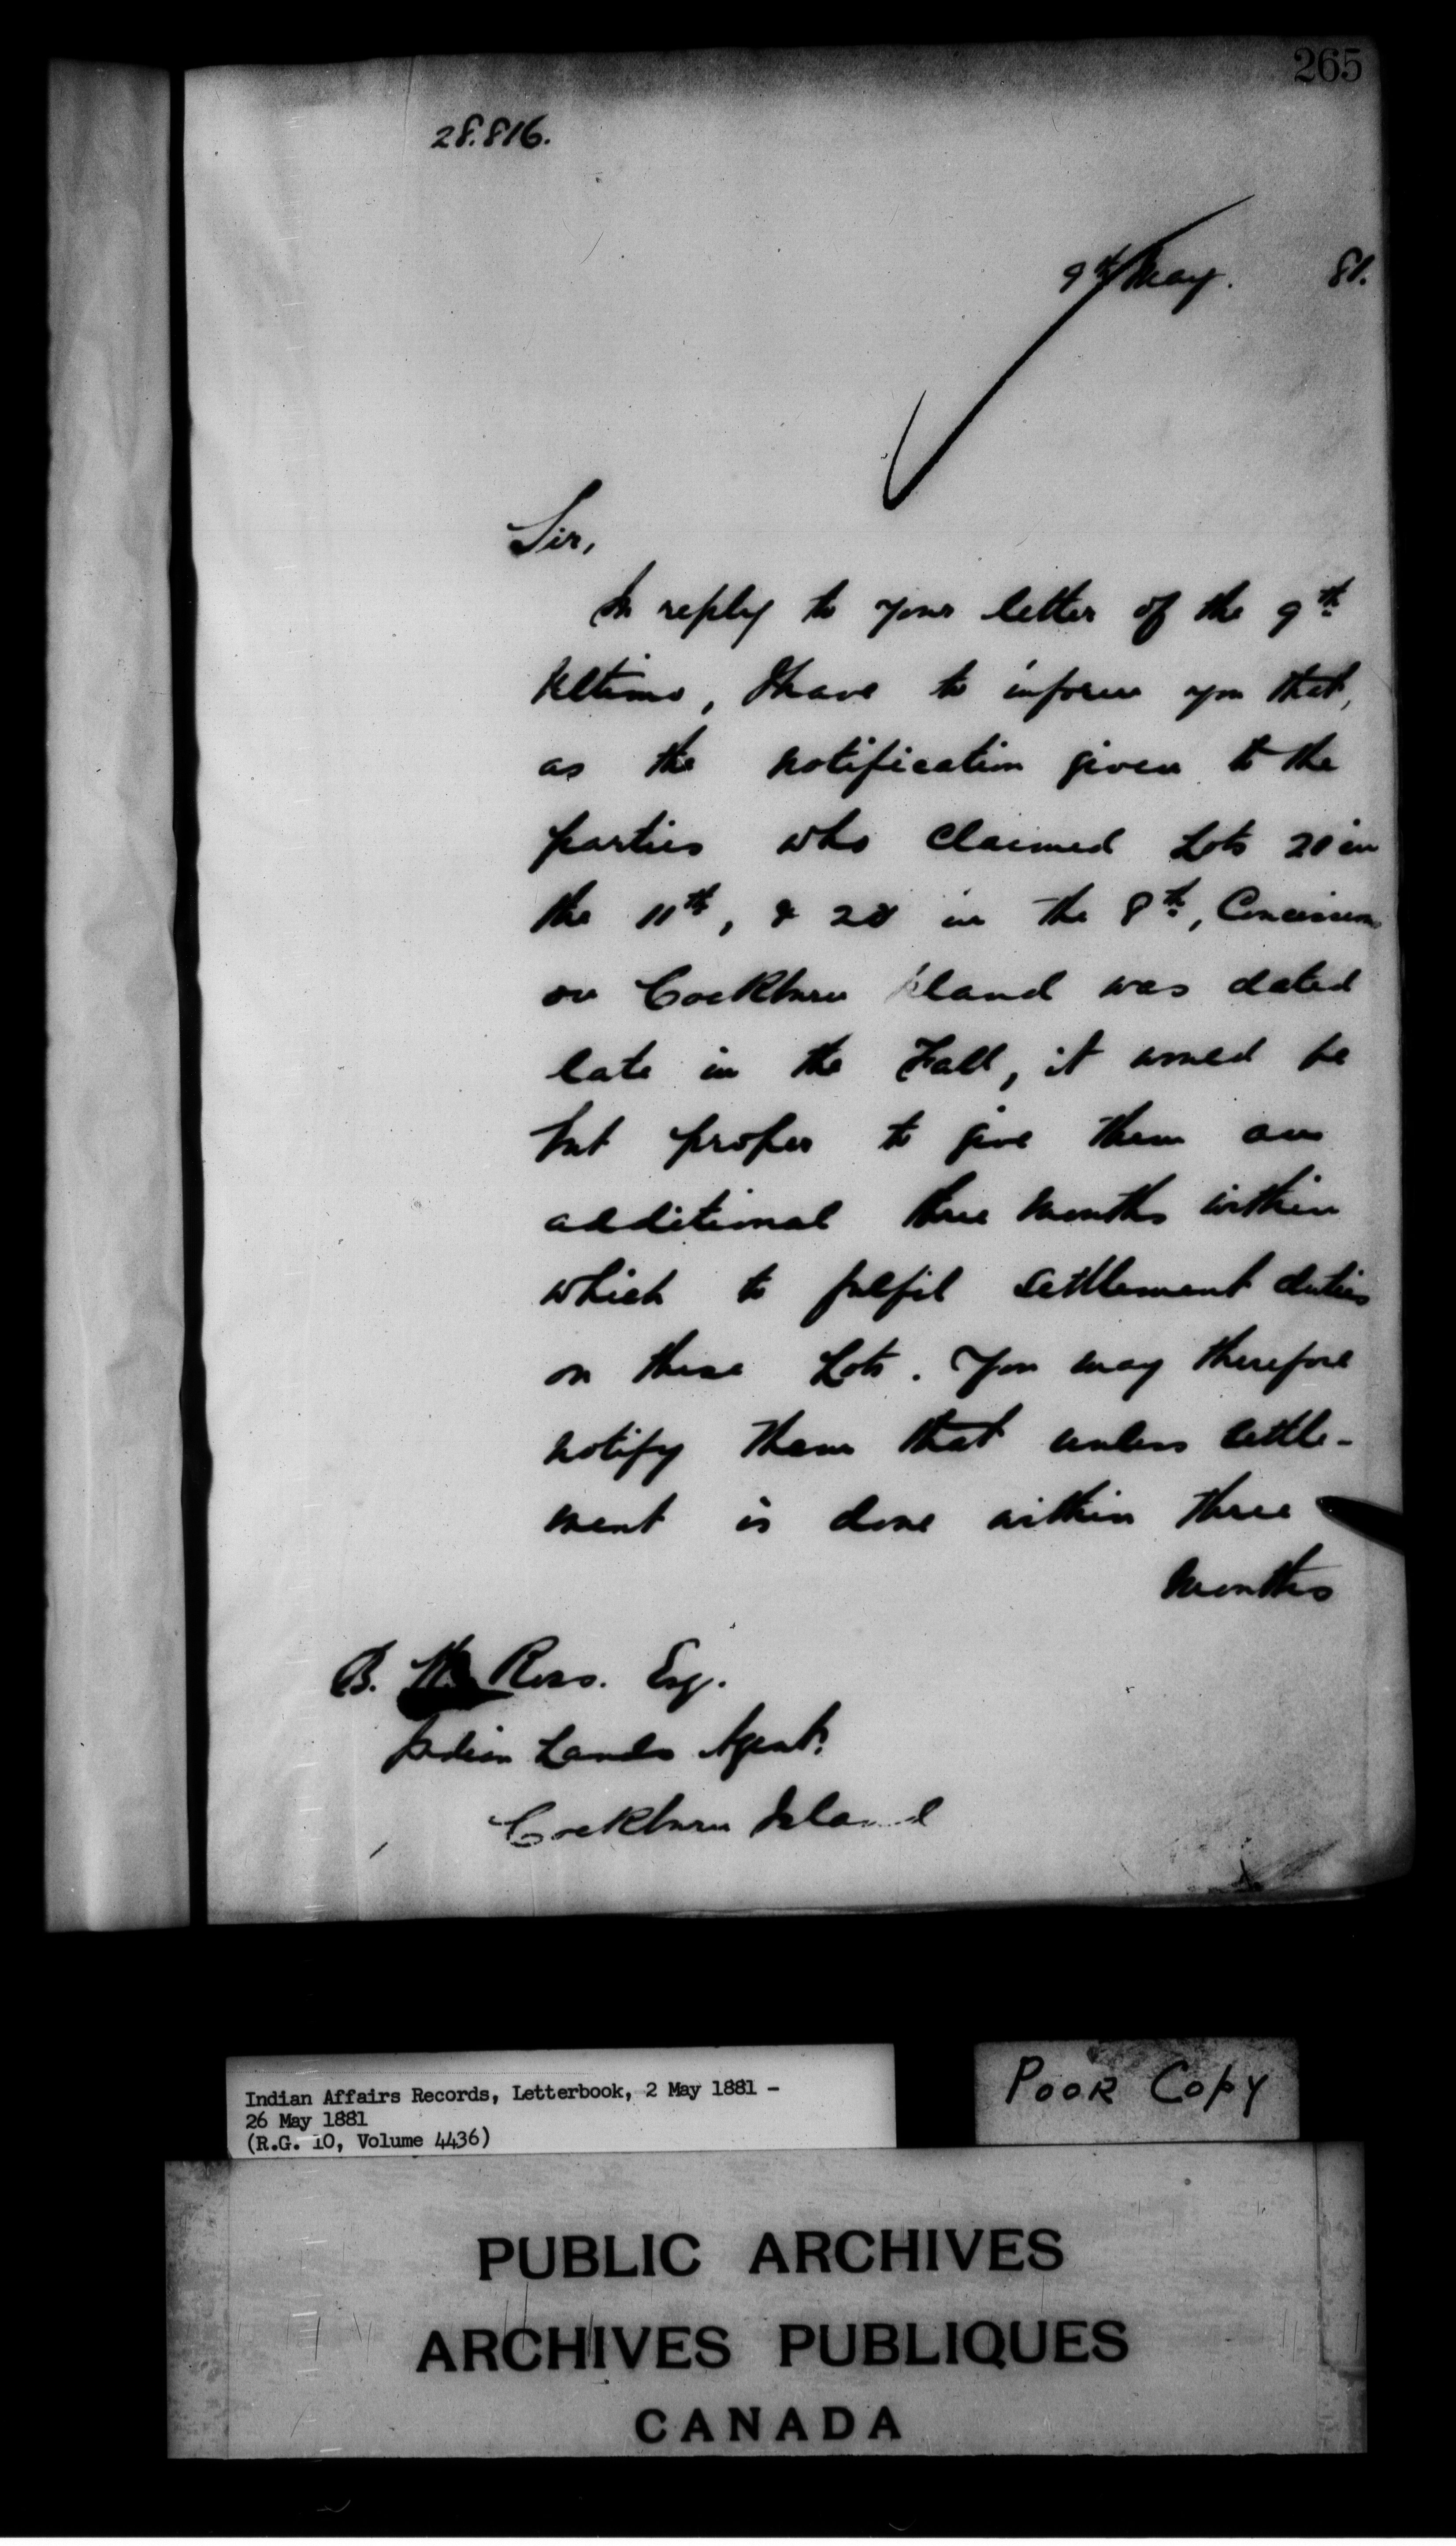 265
28.816.
9th May. 81.
Sir,
In reply to your letter of the 9th
Ultimo, I have to inform you that,
as the notification given to the
parties who claimed Lots 20 in
the 11th, & 20 in the 8th, Concession
on Cockburn Island was dated
late in the Fall, it would be
but proper to give them an
additional three months within
which to fulfil settlement duties
on these Lots. You may therefore
notify them that unless settle-
ment is done within three
months
B. Ross. Esq.
Indian Lands Agent,
Cockburn Island
Indian Affairs Records, Letterbook, 2 May 1881 -
26 May 1881
(R.G. 10, Volume 4436)
POOR COPY
PUBLIC ARCHIVES
ARCHIVES PUBLIQUES
CANADA